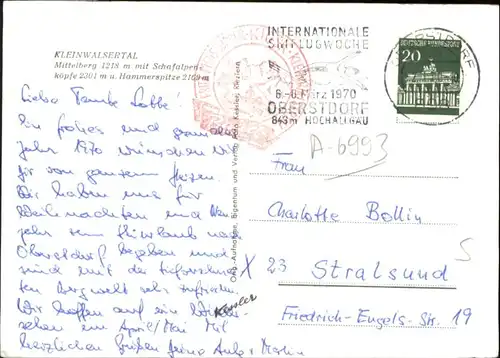 KLEINWALSERTAL
Mittelberg 1218 m mit Schafalpen-
köpfe 2301 m u. Hammerspitze 2169 m
INTERNATIONALE
SKIFLUGWOCHE
6.-8. März 1970
OBERSTDORF
843m HOCHALLGÄU
OBERSTDORF
DEUTSCHE BUNDESPOST
20
A-6993
Liebe Tante Lotte!
Ein frohes und gesundes
Jahr 1970 wünschen wir
Dir von ganzem Herzen.
Wir haben uns für
Weihnachten und
jahr zum Skiurlaub nach
Oberstdorf begeben und
sind mit der
ten Bergwelt sehr zufrieden.
Wir hoffen auf ein Wieder-
sehen im April/Mai Mit
herzlichen Grüßen Deine Anke + Martin
Kessler
Orig.-Aufnahme, Eigentum und Verlag
Frau
Charlotte Bollin
X 23 Stralsund
5
Friedrich-Engels-Str. 19